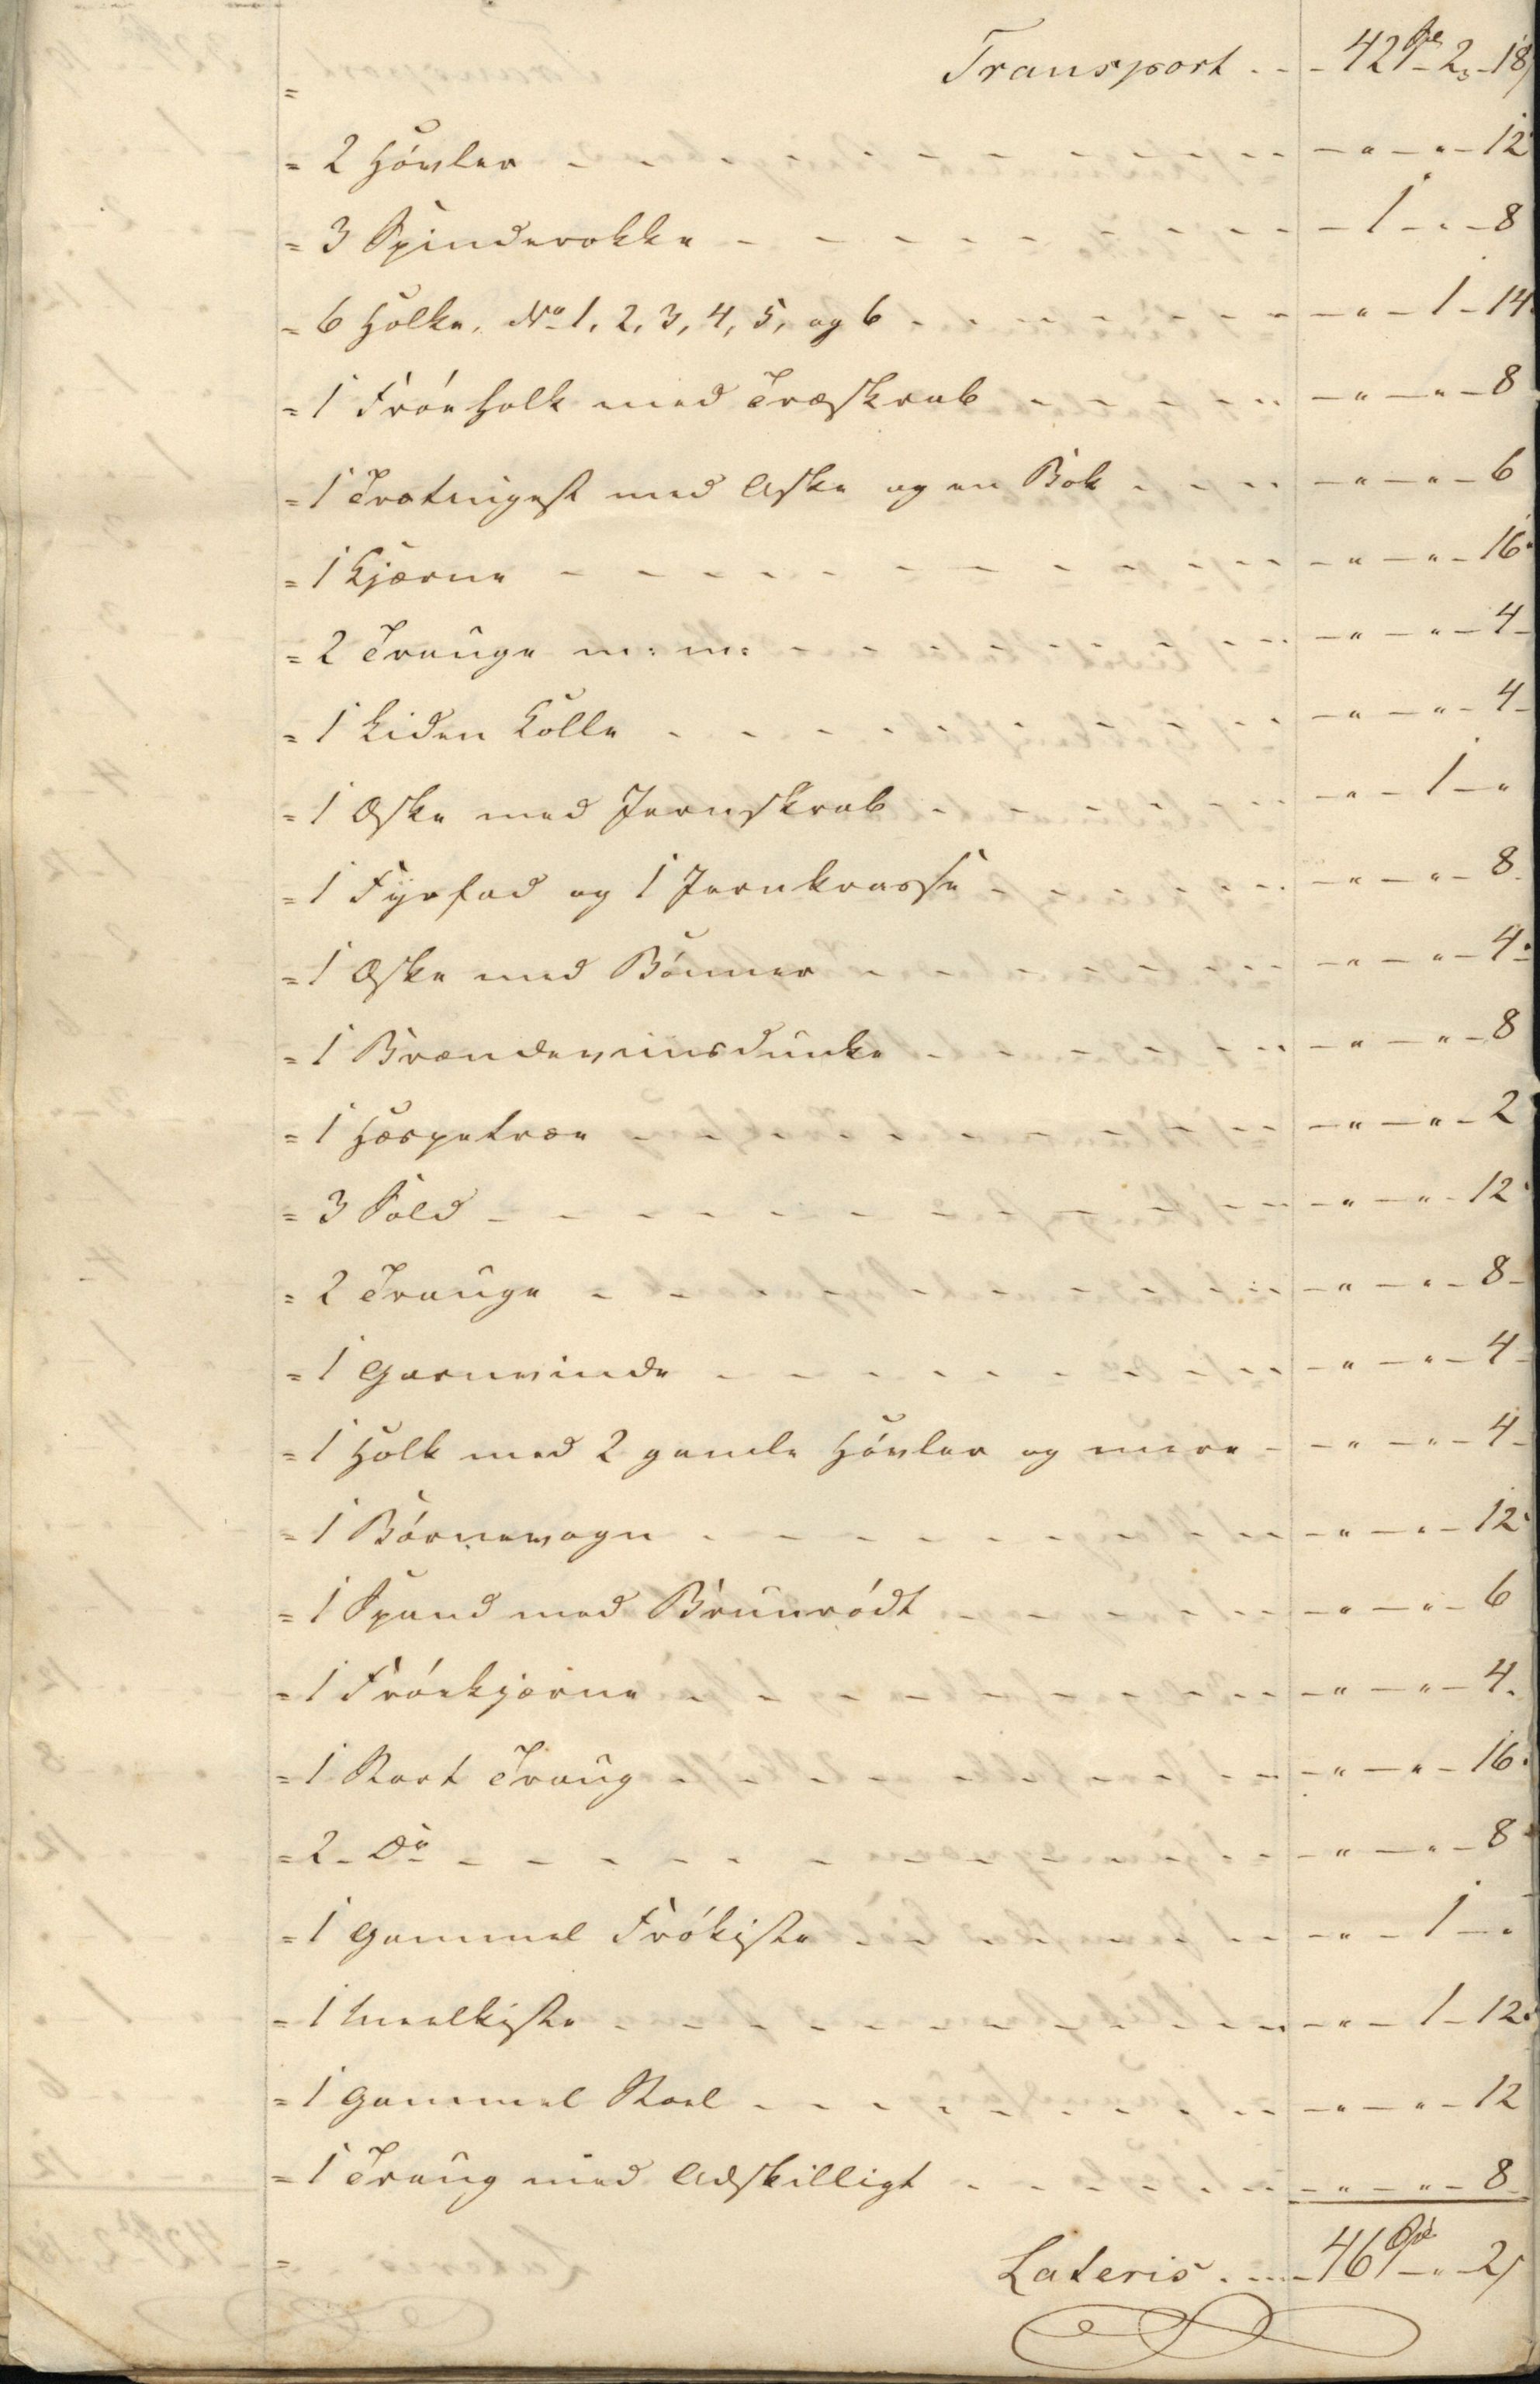 Transport - - 42 Rd - 2 - 18
= 2 Høvler - - - - " - " - 12
= 3 Spinderokke - - - - 1 - " - 8
= 6 Holke, No 1, 2, 3, 4, 5, og 6 - - - " - 1 - 14
= 1 Frøeholk med Træskrab - - - " - " - 8
= 1 med Aske og en Bok - - - " - " - 6
= 1 Kjærne - - - - " - " - 16
= 2 Trauge m: m: - - - " - " - 4
= 1 Liden Kolle - - - " - " - 4
= 1 Æske med Jernskrab - - - " - 1 - "
= 1 Fyrfad og 1 Jernkrasse - - - " - " - 8
= 1 Æske med Bönner - - - " - " - 4
= 1 Brændeviinsdunke - - - " - " - 8
= 1 Haspetræe - - - " - " - 2
= 3 Sold - - - - " - " - 12
= 2 Trauge - - - " - " - 8
= 1 Garnvinde - - - " - " - 4
= 1 Holk med 2 gamle Høvler og mere - " - " - 4
= 1 Børnevogn - - - " - " - 12
= 1 Spand med Bruunrødt - - - " - " - 6
= 1 Frøekjærne - - - " - " - 4
= 1 Stort Traug - - - " - " - 16
= 2 - Do - - - - " - " - 8
= 1 Gammel Frøkiste - - - " - 1 - "
= 1 Meelkiste - - - " - 1 - 12
= 1 Gammel Stoel - - - " - " - 12
= 1 Traug med Adskilligt - - - " - " - 8
Lateris - - 46 Rd - " - 2